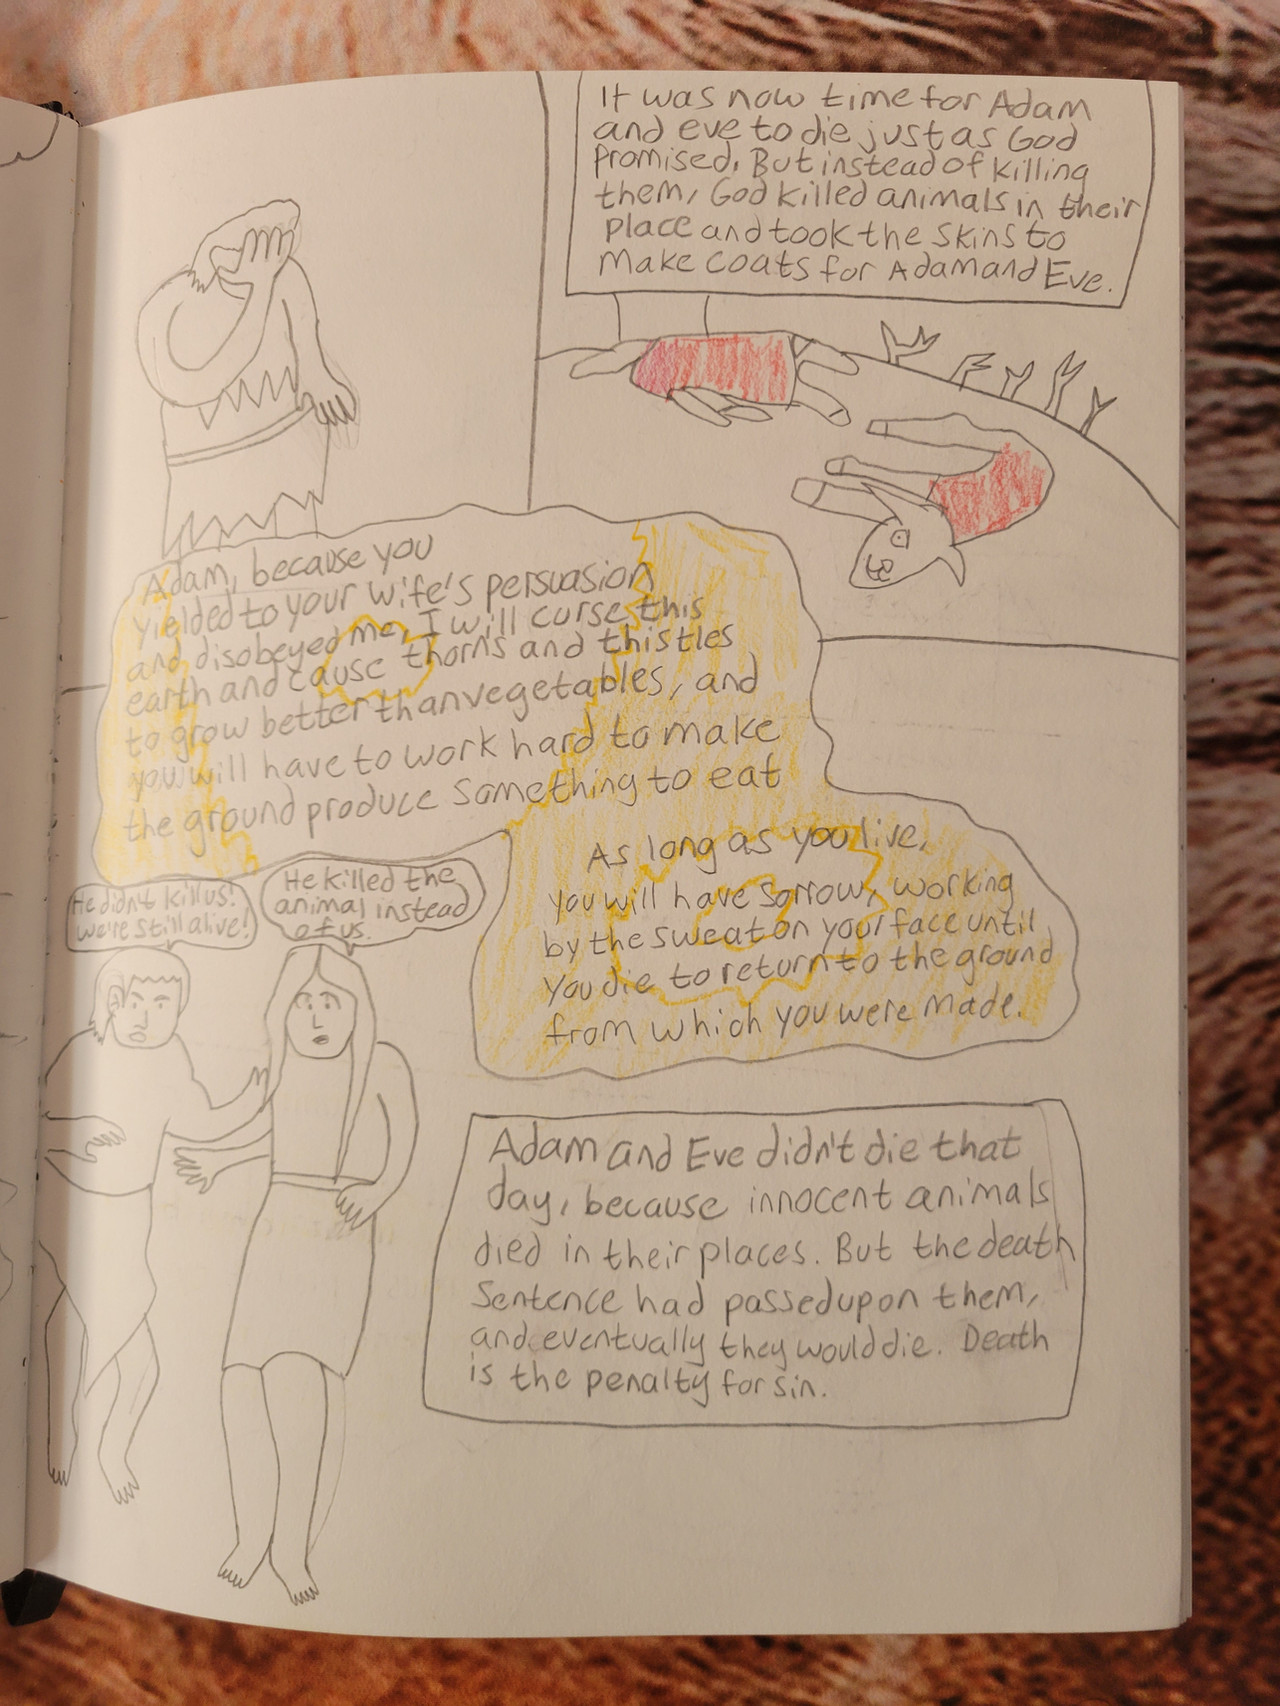 It was now time for Adam
and eve to die just as God
promised. But instead of killing
them, God killed animals in their
place and took the skins to
make coats for Adam and Eve.
Adam, because you
yielded to your wife's persuasion
and disobeyed me, I will curse this
earth and cause thorns and thistles
to grow better than vegetables, and
you will have to work hard to make
the ground produce something to eat
As long as you live,
you will have sorrow, working
by the sweat on your face until
you die to return to the ground
from which you were made.
He didn't kill us!
We're still alive!
He killed the
animal instead
of us.
Adam and Eve didn't die that
day, because innocent animals
died in their places. But the death
sentence had passed upon them,
and eventually they would die. Death
is the penalty for sin.